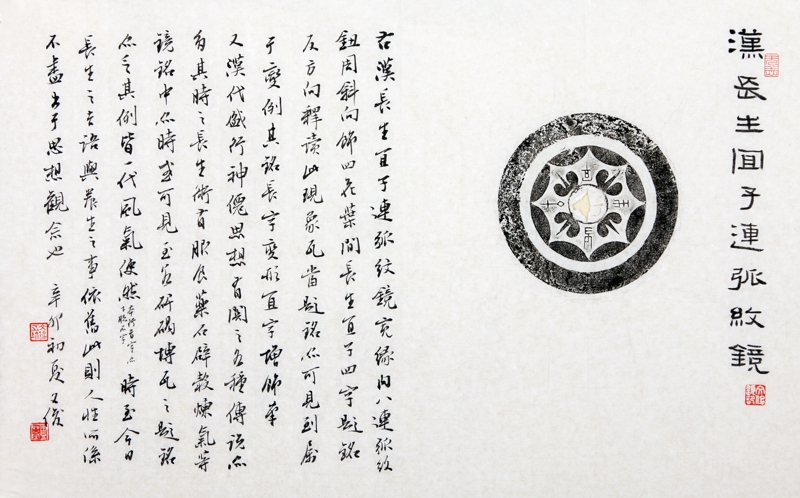 漢長生宜子連弧紋鏡
右漢長生宜子連弧紋鏡宽緣内八連弧纹
鈕周斜向飾四花葉間長生宜子四字题銘
反方向釋读此現象瓦當题銘亦可見到属
于變例其銘長字變形宜字增飾
又漢代盛行神僊思想有関之各種傳説亦
多其時之長生術有服食藥石辟穀煉氣等
鏡銘中亦時或可見至若研碣塼瓦之题銘
亦乏其例皆一代風氣使然時至今日
長生之吉語與养生之事依舊此則人性所係
不盡出于思想觀念也 辛卯初夏
長生宜子